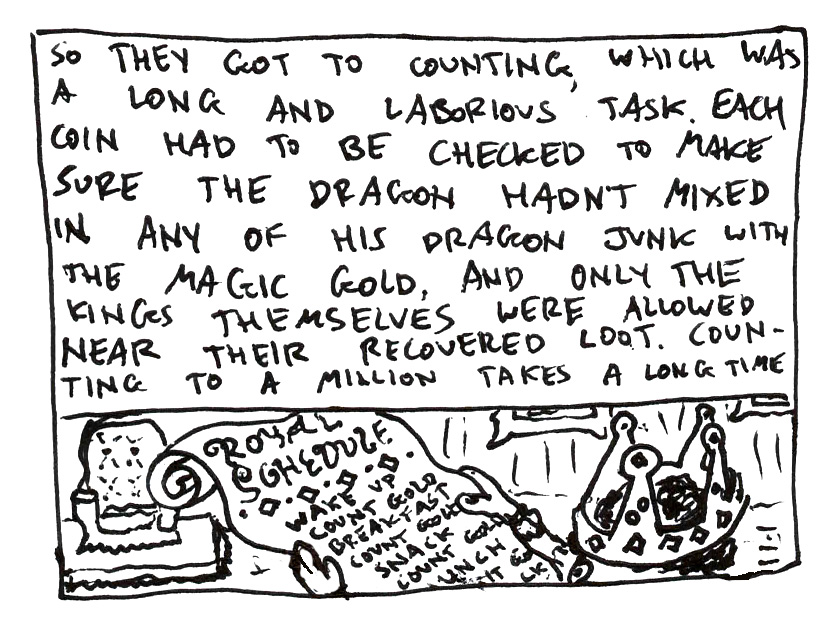 SO THEY GOT TO COUNTING, WHICH WAS
A LONG AND LABORIOUS TASK. EACH
COIN HAD TO BE CHECKED TO MAKE
SURE THE DRAGON HADN'T MIXED
IN ANY OF HIS DRAGON JUNK WITH
THE MAGIC GOLD, AND ONLY THE
KINGS THEMSELVES WERE ALLOWED
NEAR THEIR RECOVERED LOOT. COUN-
TING TO A MILLION TAKES A LONG TIME
ROYAL
SCHEDULE
WAKE UP
COUNT GOLD
BREAKFAST
COUNT GOLD
SNACK
COUNT GOLD
LUNCH